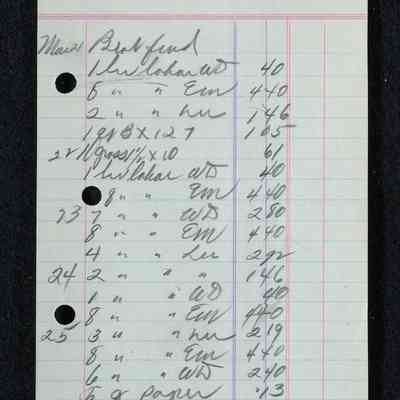 Mar 21 Brot fwd
1 hr labor WD 40
8 " " Em 4 40
2 " " Lee 1 46
1 qr B X 12 7 1 05
22 1/2 gross 1 1/2 X 10 61
1 hr labor WD 40
8 " " Em 4 40
23 7 " " WD 2 80
8 " " Em 4 40
4 " " Lee 2 92
24 2 " " " 1 46
1 " " WD 40
8 " " Em 4 40
25 3 " " Lee 2 19
8 " " Em 4 40
6 " " WD 2 40
5 " paper 13